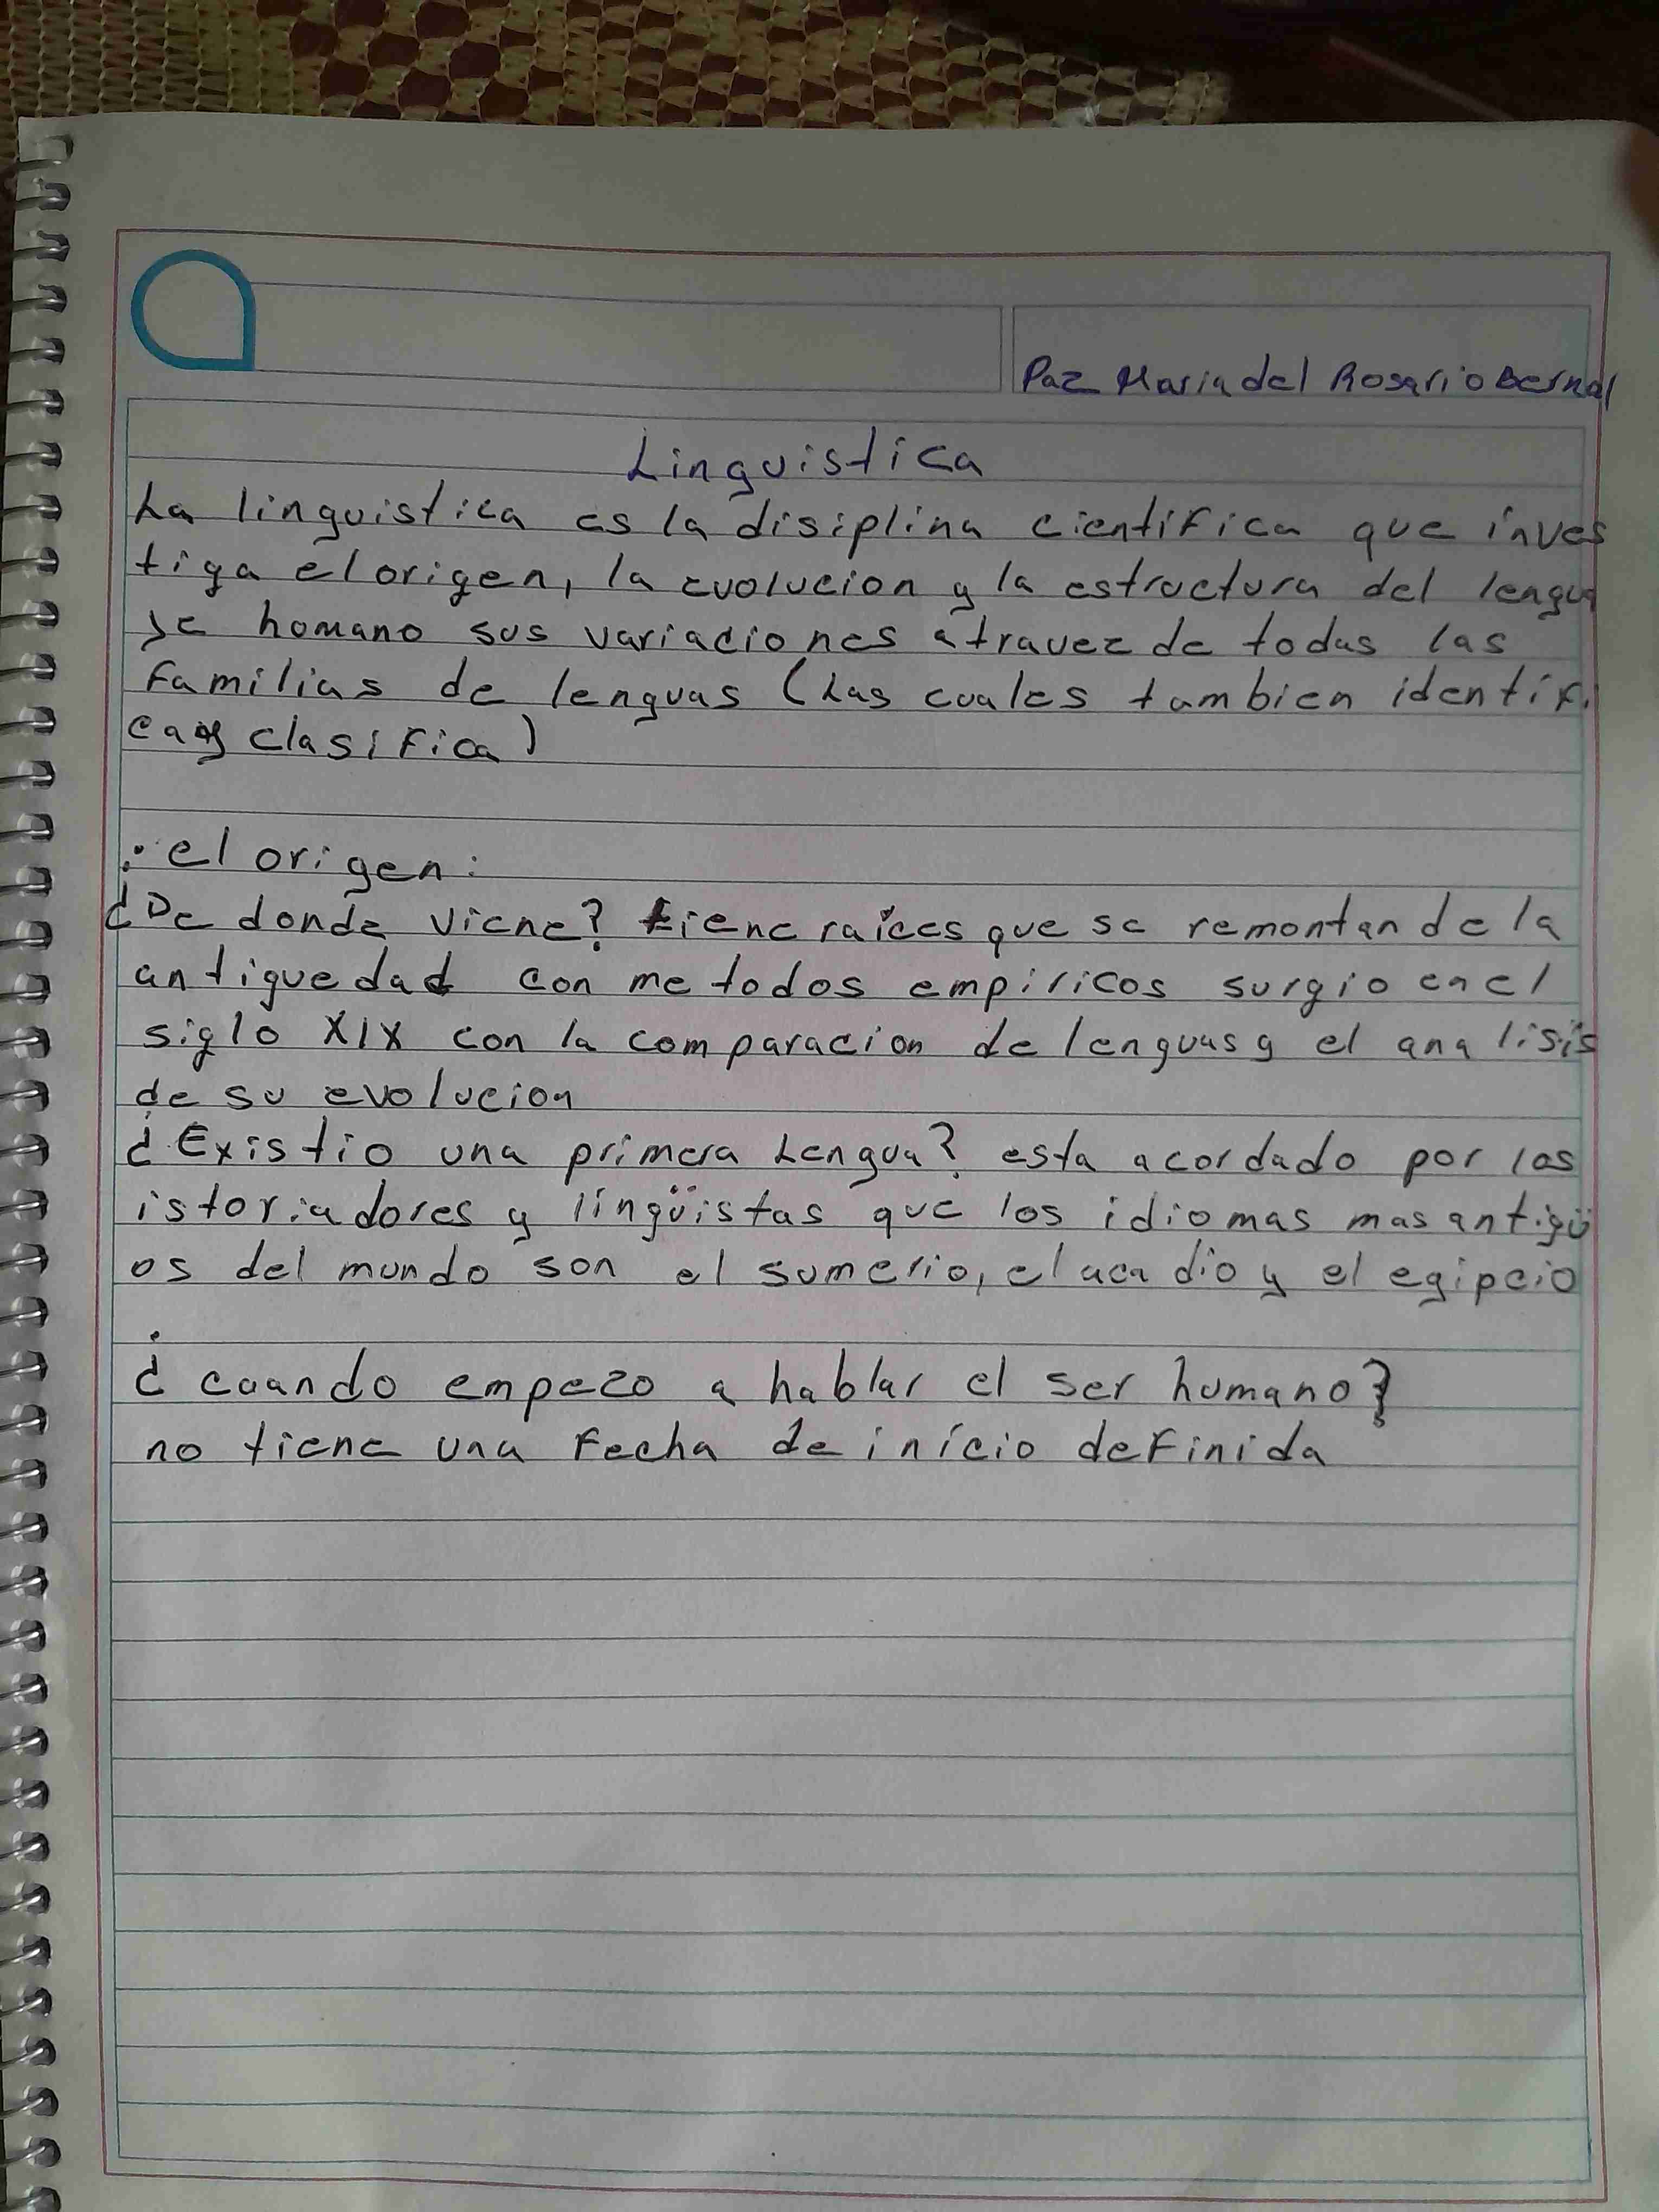 Paz Maria del Rosario Bernal
Linguistica
La linguistica es la disiplina cientifica que inves
tiga el origen, la evolucion y la estructura del lengua
je homano sus variaciones atravez de todas las
familias de lenguas (Las cuales tambien identifi
ca y clasifica)
: el origen:
¿De donde viene? tiene raíces que se remontan de la
antiguedad con metodos empiricos surgio en el
siglo XIX con la comparacion de lenguas y el analisis
de su evolucion
¿Existio una primera Lengua? esta acordado por los
istoriadores y lingüistas que los idiomas mas antigü
os del mundo son el sumerio, el acadio y el egipcio
.
¿cuando empezo a hablar el ser humano?
no tiene una fecha de inicio definida